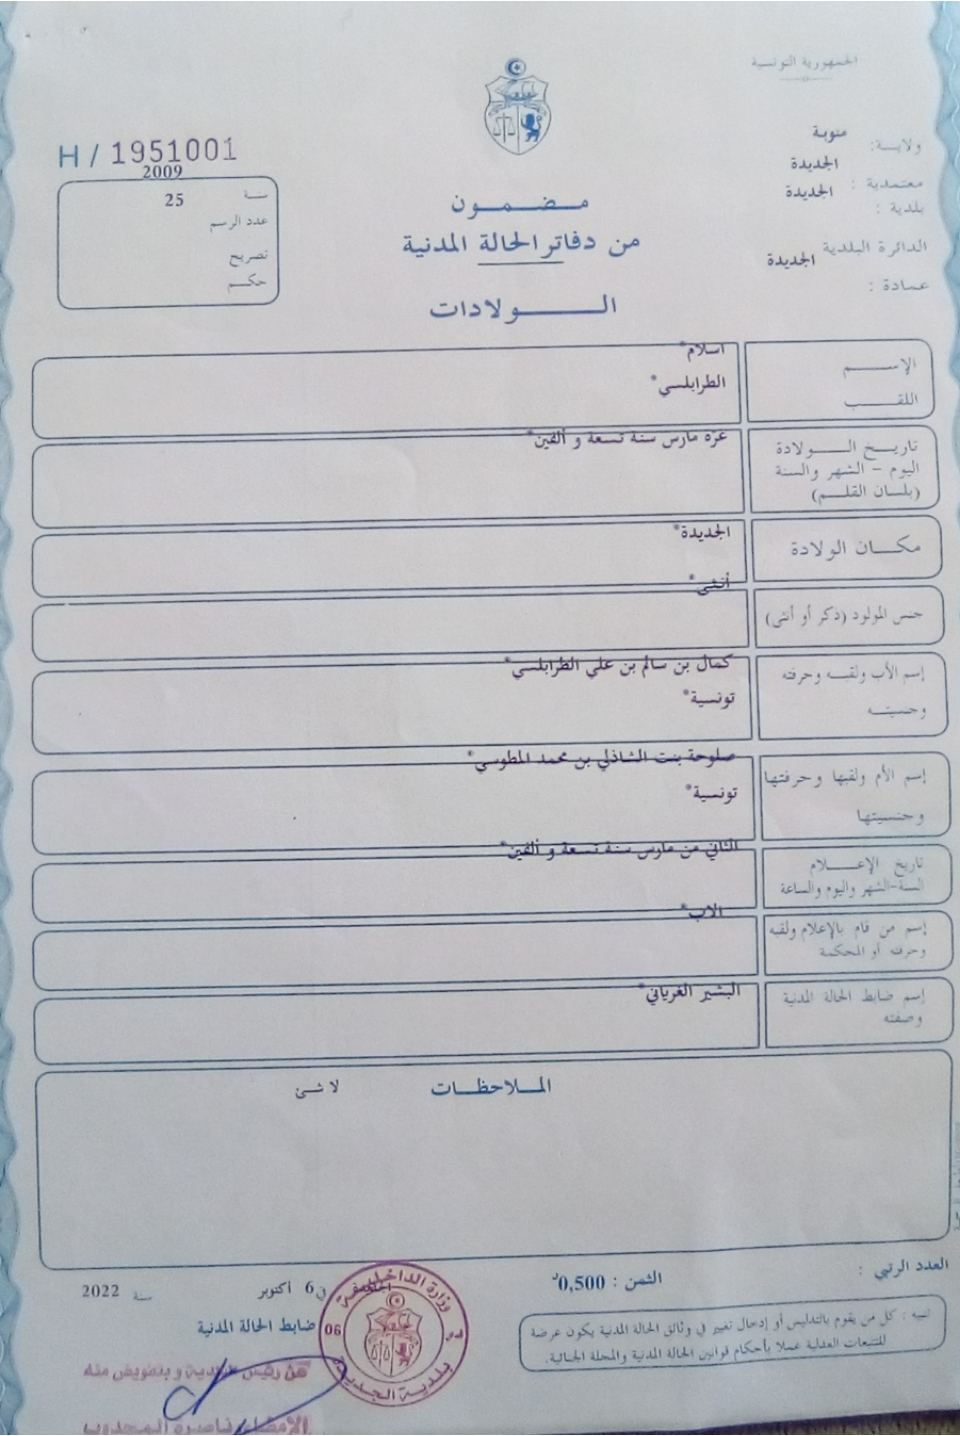 الجمهورية التونسية
ولاية: منوبة
معتمدية : الجديدة
بلدية : الجديدة
الدائرة البلدية الجديدة
عمادة :
H / 1951001
سنة 2009
عدد الرسم 25
تصريح
حكم
مضمون
من دفاتر الحالة المدنية
الولادات
الإسم اسلام*
اللقب الطرابلسي*
تاريخ الولادة غرّة مارس سنة تسعة و ألفين*
اليوم - الشهر والسنة
(بلسان القلم)
مكان الولادة الجديدة*
جنس المولود (ذكر أو أنثى) أنثى*
إسم الأب ولقبه وحرفته كمال بن سالم بن علي الطرابلسي*
وجنسيته تونسية*
إسم الأم ولقبها وحرفتها صلوحة بنت الشاذلي بن محمد المطوسي*
وجنسيتها تونسية*
تاريخ الإعلام الثاني من مارس سنة تسعة و ألفين*
السنة-الشهر واليوم والساعة
إسم من قام بالإعلام ولقبه الاب*
وحرفته أو المحكمة
إسم ضابط الحالة المدنية البشير الغرياني*
وصفته
الملاحظات لا شئ
العدد الرتبي :
الثمن : 0,500د
تنبيه : كل من يقوم بالتدليس أو إدخال تغيير في وثائق الحالة المدنية يكون عرضة
للتتبعات العدلية عملا بأحكام قوانين الحالة المدنية والمجلة الجنائية.
في 6 أكتوبر سنة 2022
ضابط الحالة المدنية
وزارة الداخلية
06
بلدية الجديدة
عن رئيس البلدية و بتفويض منه
الإمضاء ناصر المجدوب